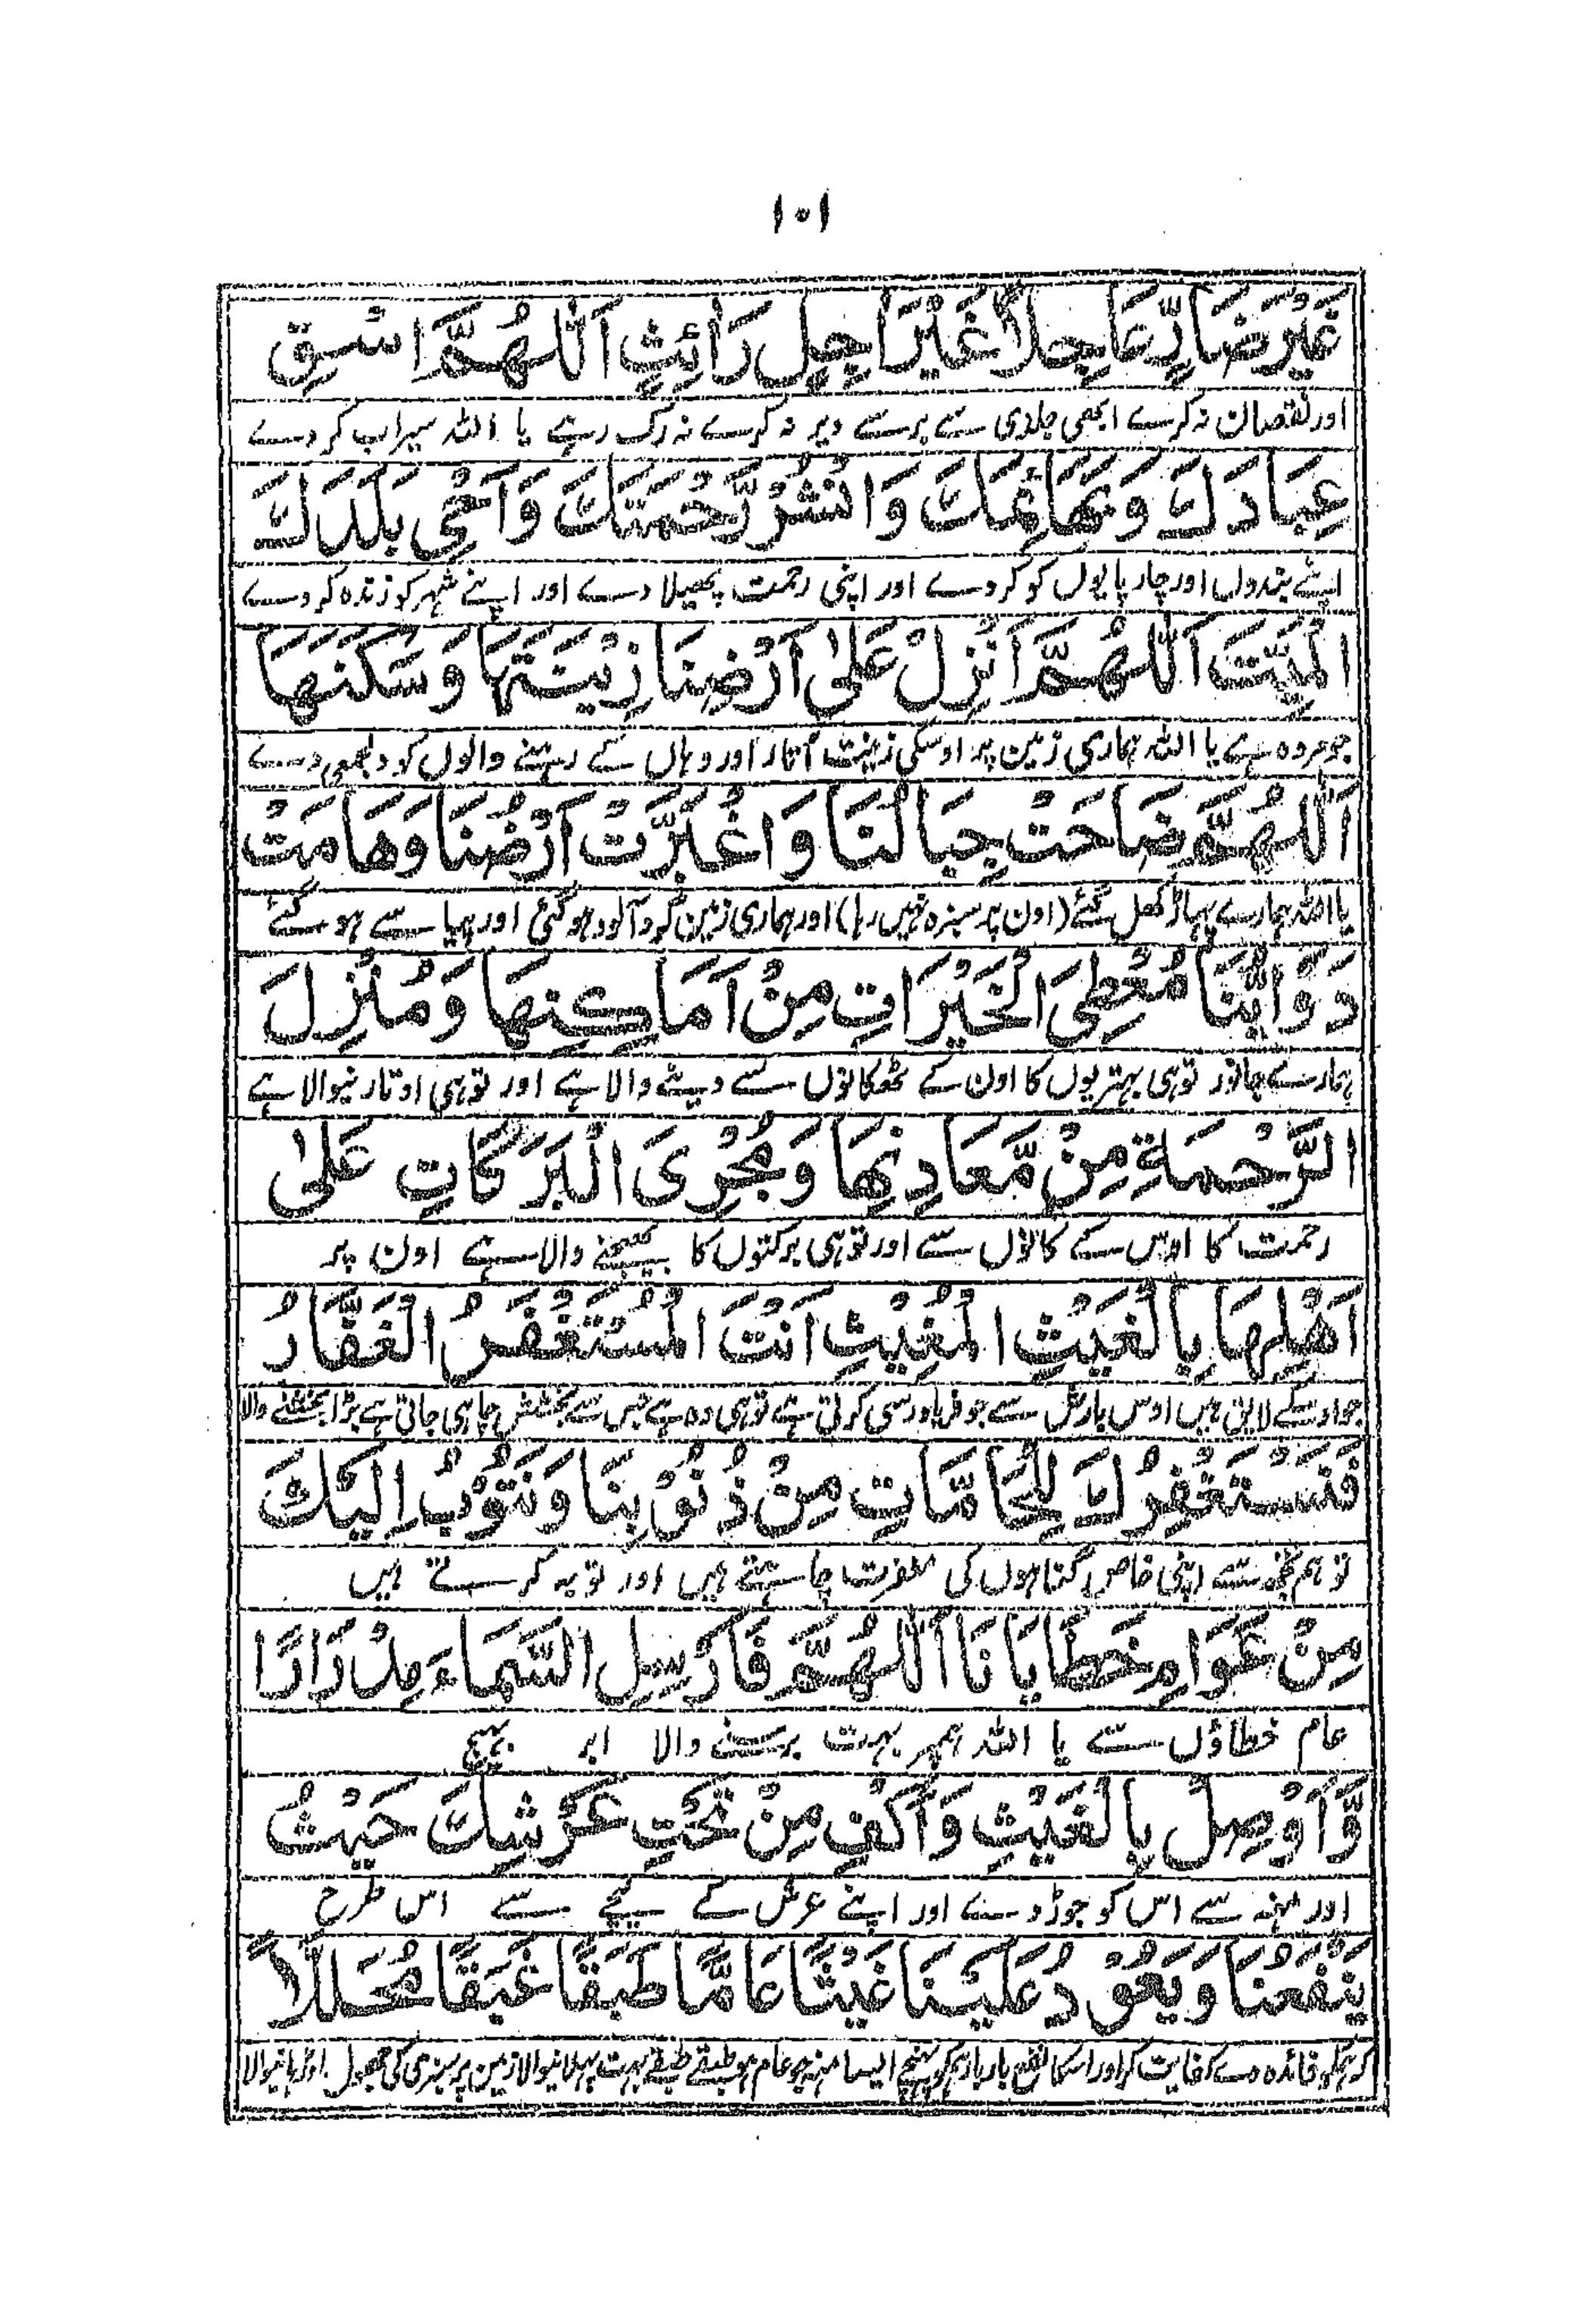 ١٠١
غَيْرَ ضَارٍّ عَاجِلًا غَيْرَ اٰجِلٍ رَائِثٍ اَللّٰهُمَّ اسْقِ
اور نقصان نہ کرے ابھی جلدی سے برسے دیر نہ کرے نہ رک رہے یا اللہ سیراب کر دے
عِبَادَكَ وَبَهَائِمَكَ وَانْشُرْ رَحْمَتَكَ وَاَحْيِ بَلَدَكَ
اپنے بندوں اور چارپایوں کو کر دے اور اپنی رحمت پھیلا دے اور اپنے شہر کو زندہ کر دے
الْمَيِّتَ اَللّٰهُمَّ اَنْزِلْ عَلٰى اَرْضِنَا زِيْنَتَهَا وَسَكَنَهَا
جو مردہ ہے یا اللہ ہماری زمین پر اوسکی زینت اُتار اور وہاں کے رہنے والوں کو دلجمعی دے
اَللّٰهُمَّ ضَاحَتْ جِبَالُنَا وَاغْبَرَّتْ اَرْضُنَا وَهَامَتْ
یا اللہ ہمارے پہاڑ کھل گئے (اون پر سبزہ نہیں رہا) اور ہماری زمین گرد آلود ہو گئی اور پیاسے ہو گئے
دَوَابُّنَا مُعْطِيَ الْخَيْرَاتِ مِنْ اَمَاكِنِهَا وَمُنْزِلَ
ہمارے جانور توہی بہتریوں کا اون کے ٹھوکانوں سے دینے والا ہے اور توہی اوتارنیوالا ہے
الرَّحْمَةِ مِنْ مَّعَادِنِهَا وَمُجْرِىَ الْبَرَكَاتِ عَلٰى
رحمت کا اوس کے کانوں سے اور توہی برکتوں کا بھیجنے والا ہے اون پر
اَهْلِهَا بِالْغَيْثِ الْمُغِيْثِ اَنْتَ الْمُسْتَغْفَرُ الْغَفَّارُ
جو اوسکے لایق ہیں اوس بارش سے جو فریاد رسی کرتی ہے توہی وہ ہے جس سے بخشش چاہی جاتی ہے بڑا بخشنے والا
فَنَسْتَغْفِرُكَ لِلْحَامَّاتِ مِنْ ذُنُوْبِنَا وَنَتُوْبُ اِلَيْكَ
تو ہم تجھ سے اپنی خاص گناہوں کی مغفرت چاہتے ہیں اور توبہ کرتے ہیں
مِنْ عَوَامِ خَطَايَانَا اَللّٰهُمَّ فَاَرْسِلِ السَّمَاءَ مِدْرَارًا
عام خطاؤں سے یا اللہ ہمپر بہت برسنے والا ابر بھیج
وَّاَوْصِلْ بِالْغَيْثِ وَاَكْفِ مِنْ تَحْتِ عَرْشِكَ حَيْثُ
اور مہنہ سے اس کو جوڑ دے اور اپنے عرش کے نیچے سے اس طرح
يَنْفَعُنَا وَيَعُوْدُ عَلَيْنَا غَيْثًا عَامًّا طَبَقًا غَبَقًا مُجَلَّلًا
کہ ہمکو فائدہ دے کفایت کر اور اسکا نفع بار بار ہمکو پہنچے ایسا منہ جو عام ہو طبقے طبقے بہت پہلانیوالا زمین پر سبزی کی جھول اوڑہانیوالا